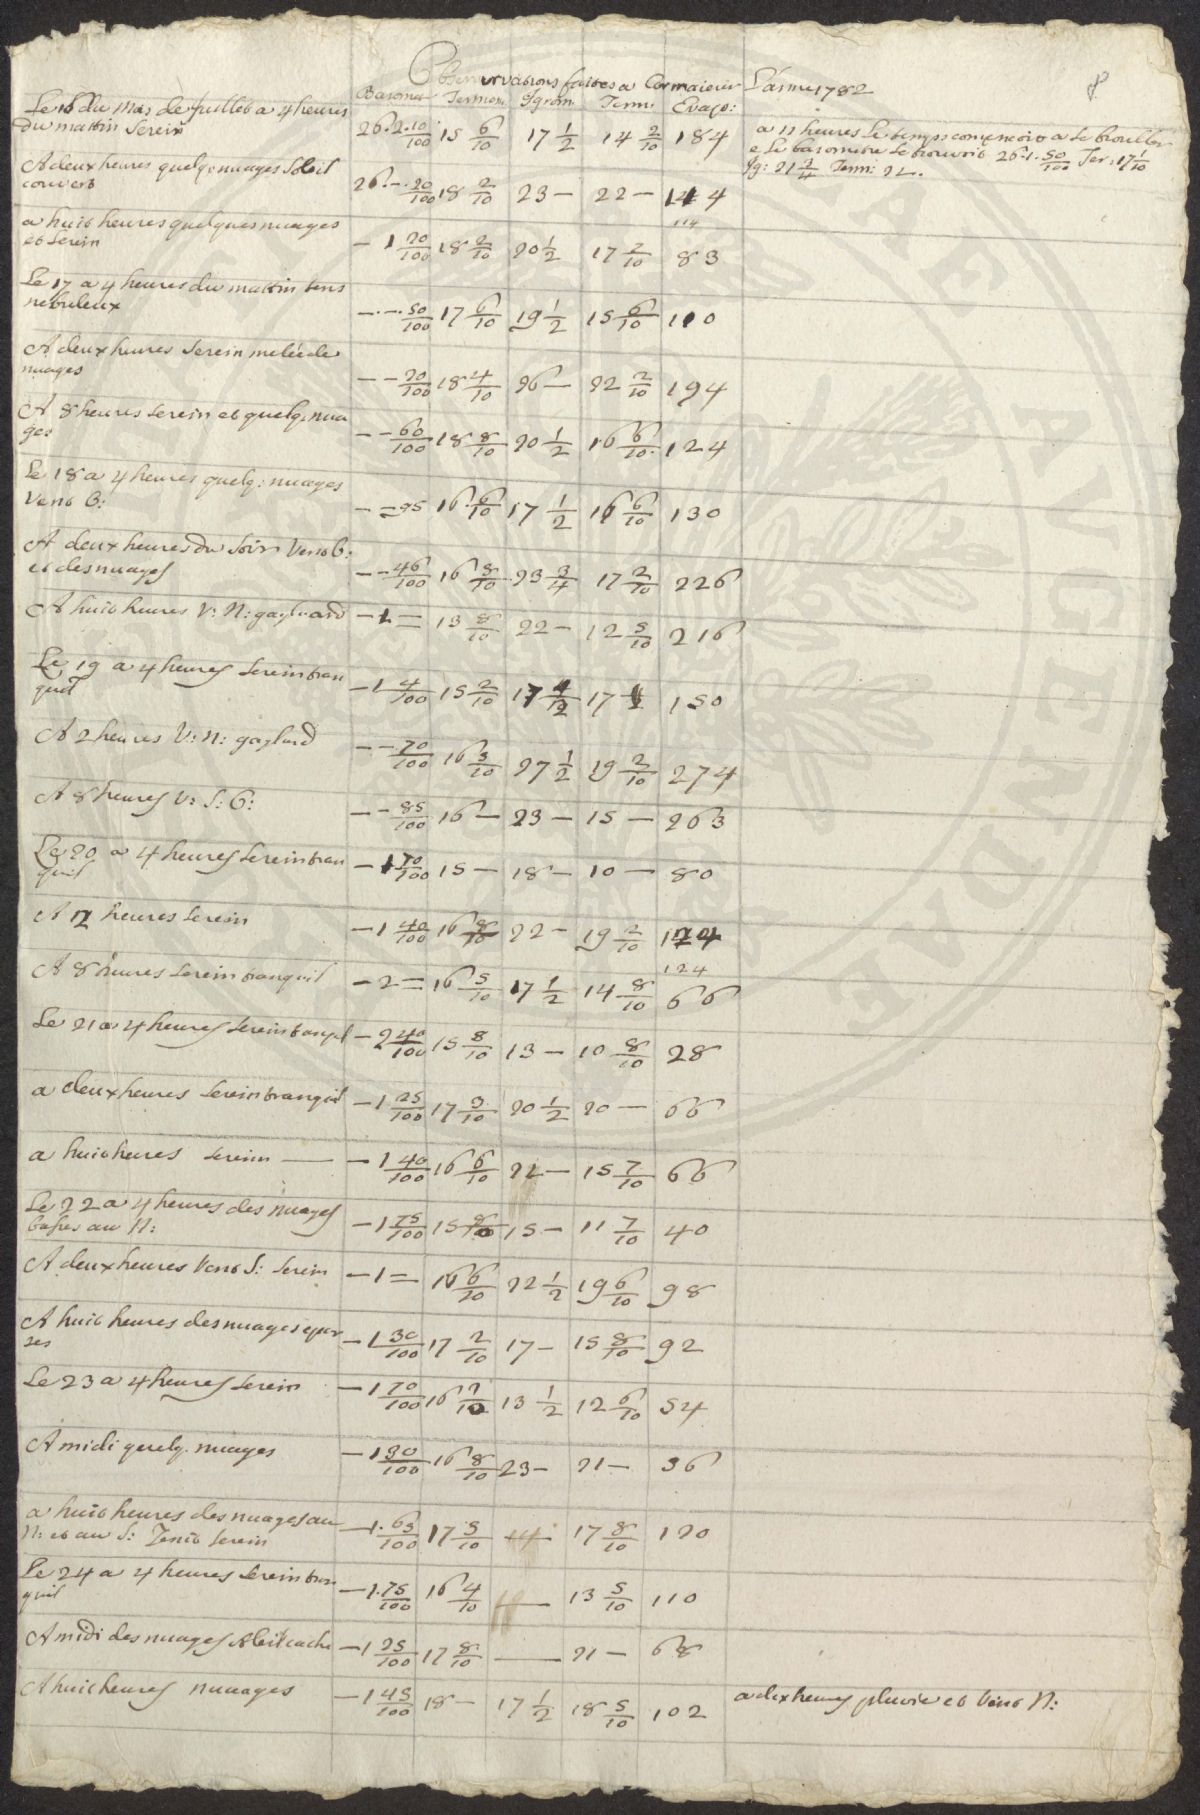 Observvations faites a Cormaieur L'année 1782
Baromet Termom: Igrom: Term: Evapo:
Le 16 du Mois de Juillet a 4 heures
du mattin Serein 26.2.10/100 15 6/10 17 1/2 14 2/10 184
a 11 heures le temps començoit a se brouiller
e le barometre se trouvoit 26.1.50/100 Ter: 17 1/10
Ig: 21 2/4 Term: 22.
A deux heures quelq: nuages Soleil
couvert 26.-.20/100 18 2/10 23 - 22 - 144
114
a huit heures quelques nuages
et serein - 1 20/100 18 2/10 20 1/2 17 2/10 83
Le 17 a 4 heures du mattin tems
nebuleux -.-.50/100 17 6/10 19 1/2 15 6/10 110
A deux heures Serein melé de
nuages - - 20/100 18 4/10 26 - 22 2/10 194
A 8 heures serein et quelq: nua
ges - - 60/100 18 8/10 20 1/2 16 6/10 124
Le 18 a 4 heures quelq: nuages
Vent B: - = 95 16 6/10 17 1/2 16 6/10 130
A deux heures du soir Vent b:
et des nuages - - 46/100 16 8/10 23 3/4 17 2/10 226
A huit heures V: N: gagliard - 1 = 13 8/10 22 - 12 5/10 216
Le 19 a 4 heures serein tran
quil - 1 4/100 15 2/10 17 1/2 17 150
A 2 heures V: N: gagliard - - 70/100 16 3/10 27 1/2 19 2/10 274
A 8 heures V: S: G: - - 85/100 16 - 23 - 15 - 263
Le 20 a 4 heures serein tran
quil - 1 70/100 15 - 18 - 10 - 80
A 12 heures serein - 1 40/100 16 8/10 22 - 19 2/10 124
124
A 8 heures serein tranquil - 2 = 16 5/10 17 1/2 14 8/10 66
Le 21 a 4 heures serein tanquil - 2 40/100 15 8/10 13 - 10 8/10 28
a deux heures serein tranquil - 1 25/100 17 3/10 20 1/2 20 - 66
a huit heures serein - 1 40/100 16 6/10 22 - 15 7/10 66
Le 22 a 4 heures des nuages
basses au N: - 1 75/100 15 8/10 15 - 11 7/10 40
A deux heures Vent S: serein - 1 = 16 6/10 22 1/2 19 6/10 98
A huit heures des nuages epar
ses - 1 30/100 17 2/10 17 - 15 8/10 92
Le 23 a 4 heures serein - 1 70/100 16 7/10 13 1/2 12 6/10 54
A midi quelq. nuages - 1 30/100 16 8/10 23 - 21 - 36
a huit heures des nuages au
N: et au S: Zenit serein - 1.65/100 17 5/10 17 8/10 120
Le 24 a 4 heures serein tran
quil - 1.75/100 16 4/10 13 5/10 110
A midi des nuages soleil caché - 1 25/100 17 8/10 - 21 - 68
A huit heures nuuages - 1 45/100 18 - 17 1/2 18 5/10 102 a dix heures pluvie et Vent N: